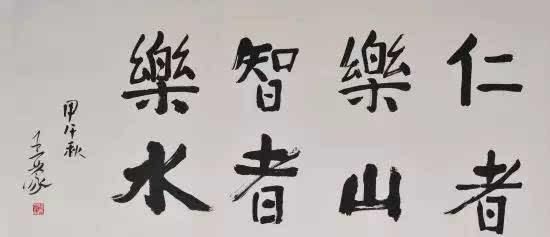 仁者
樂山
智者
樂水
甲午秋